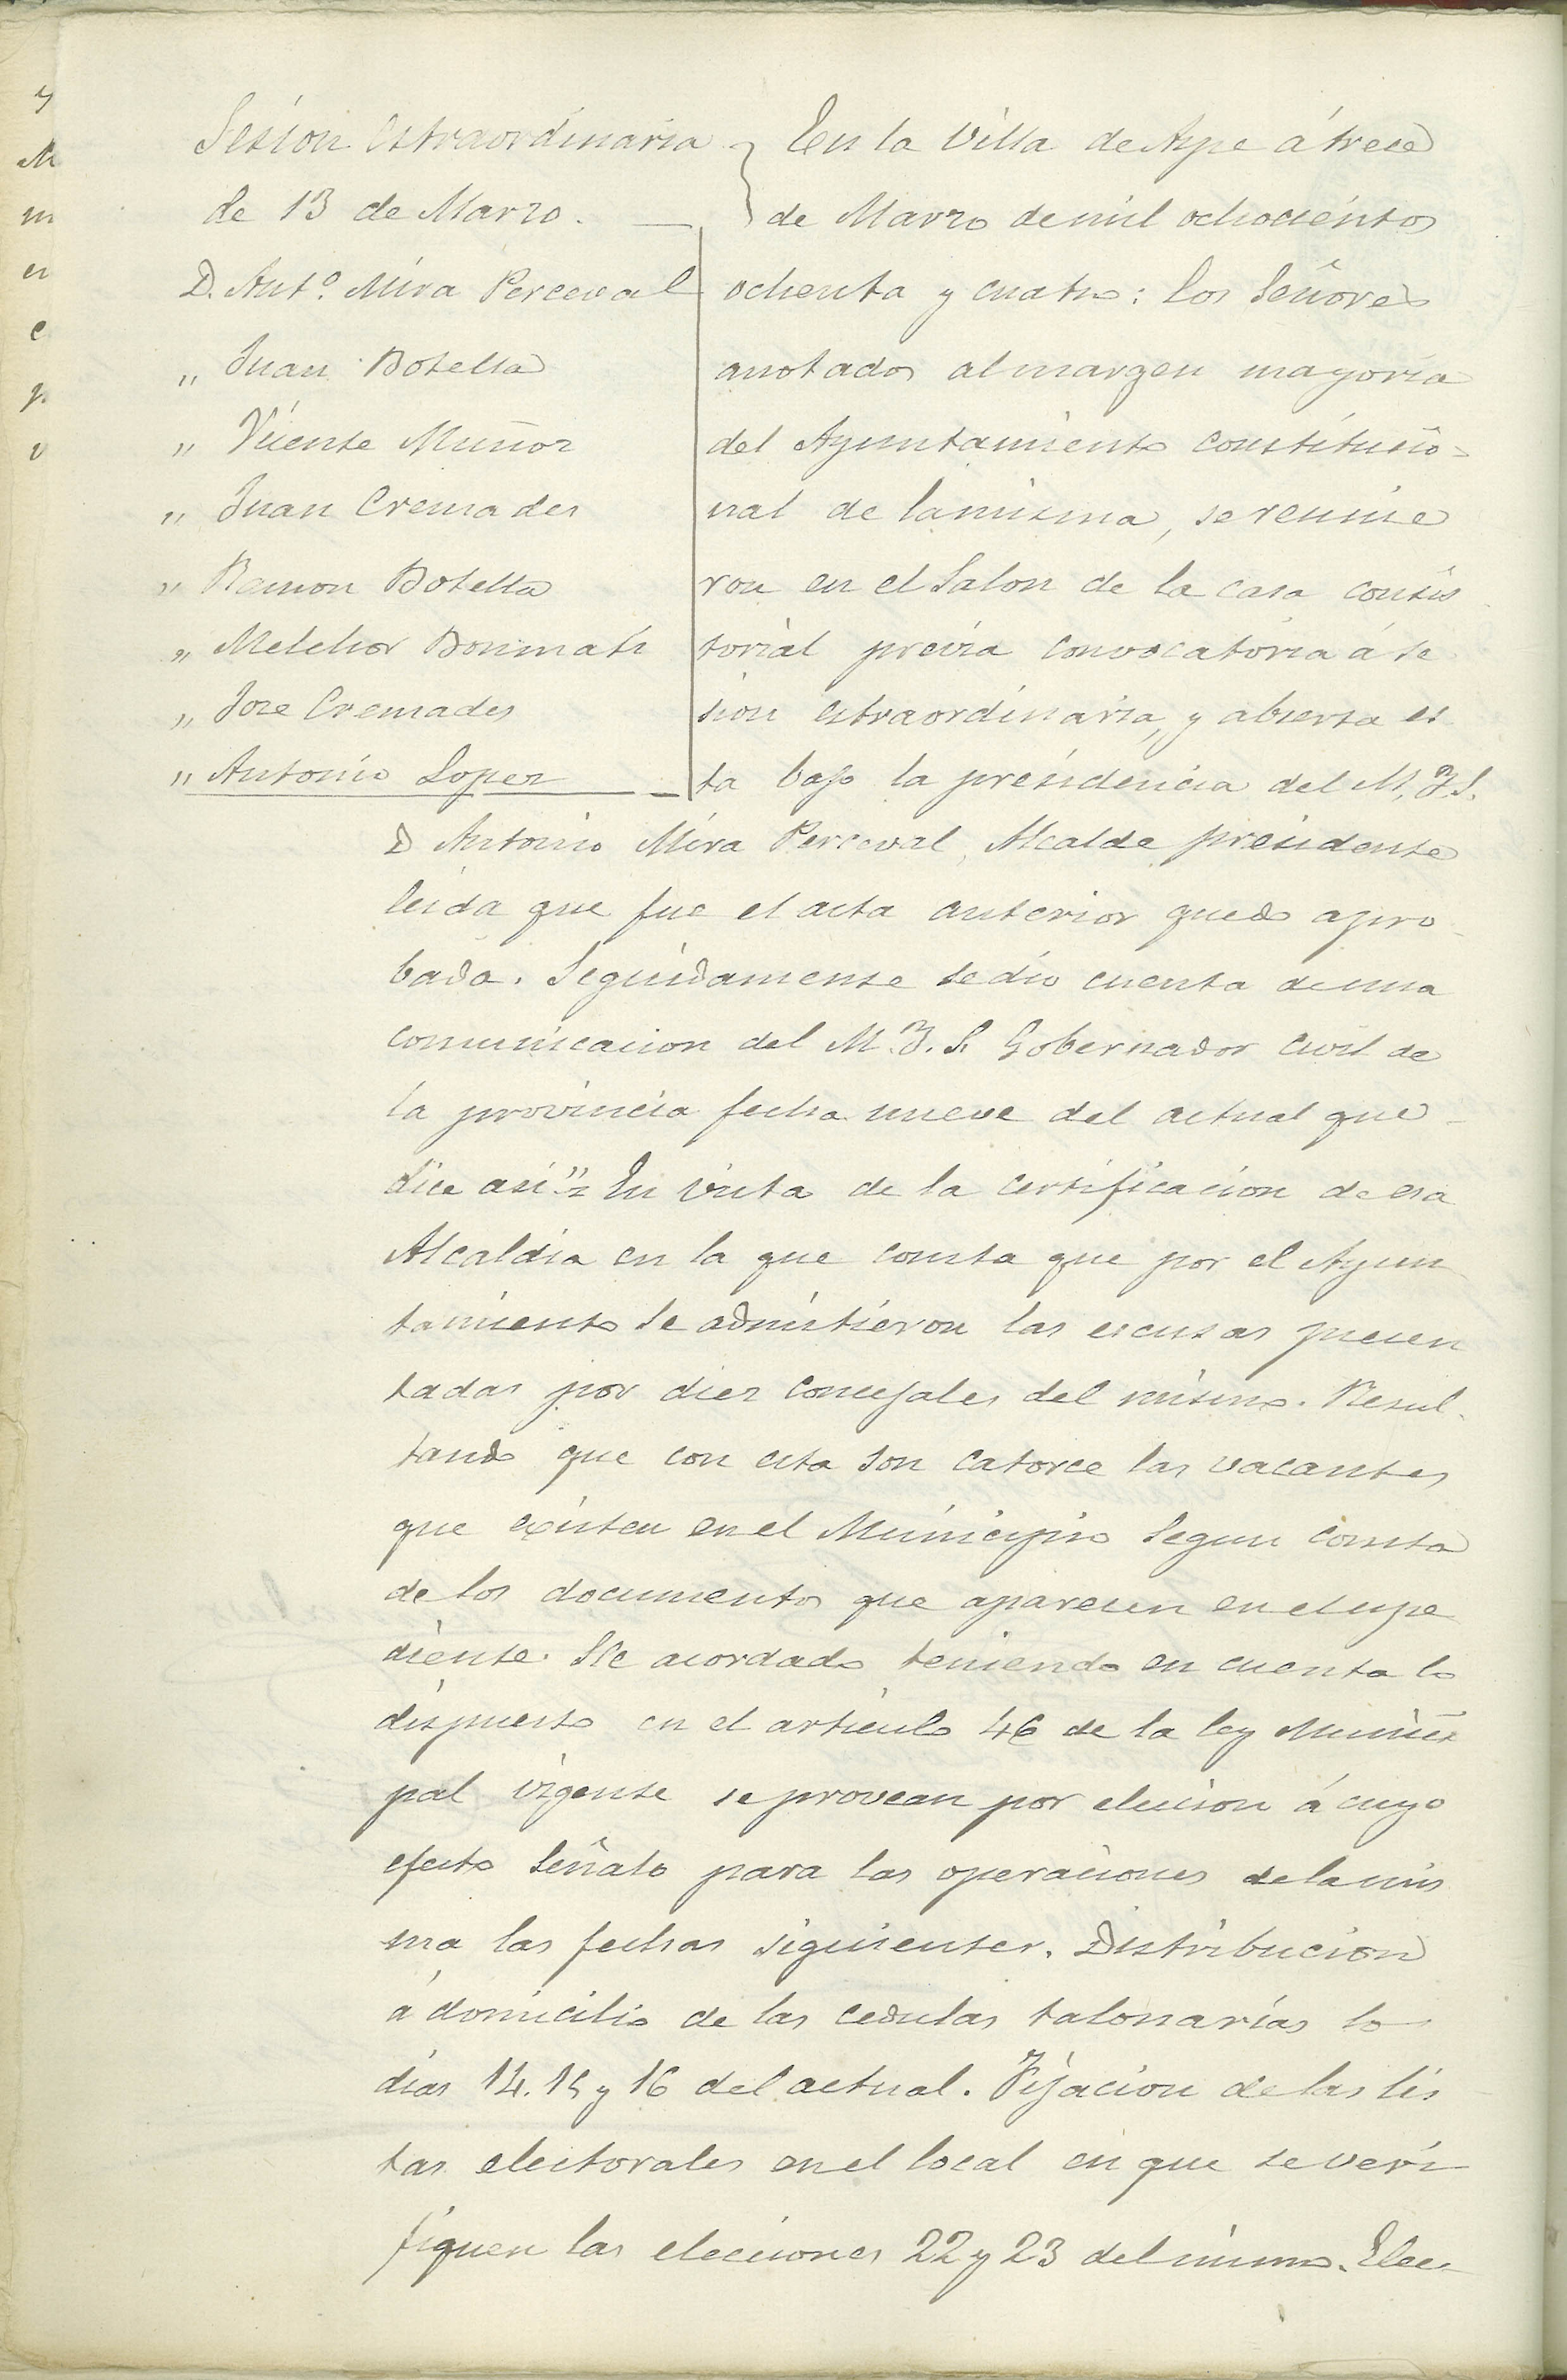 Sesion estraordinaria
de 13 de Marzo.
D. Ant.º Mira Perceval
„ Juan Botella
„ Vicente Muñoz
„ Juan Cremades
„ Ramon Botella
„ Melchor Bonmati
„ Jose Cremades
„ Antonio Lopez
En la Villa de Aspe á trece
de Marzo de mil ochocientos
ochenta y cuatro: los Señores
anotados al margen mayoria
del Ayuntamiento constitucio-
nal de la misma, se reunie
ron en el Salon de la casa consis
torial previa convocatoria á se
sion estraordinaria, y abierta es
ta bajo la presidencia del M. I. S.
D Antonio Mira Perceval, Alcalde presidente
leida que fue el acta anterior quedo apro
bada. Seguidamente se dio cuenta de una
comunicacion del M. I. S. Gobernador civil de
la provincia fecha nueve del actual que
dice asi "= En vista de la certificacion de esa
Alcaldia en la que consta que por el Ayun
tamiento se admitieron las escusas presen
tadas por diez concejales del mismo. Resul-
tando que con esta son catorce las vacantes
que existen en el Municipio segun consta
de los documentos que aparecen en el espe
diente. He acordado teniendo en cuenta lo
dispuesto en el articulo 46 de la ley Munici
pal vigente se provean por eleccion á cuyo
efecto señalo para las operaciones de la mis
ma las fechas siguientes. Distribucion
á domicilio de las cedulas talonarias los
dias 14. 15 y 16 del actual. Fijacion de las lis
tas electorales en el local en que se veri
fiquen las elecciones 22 y 23 del mismo. Elec-
y
M
m
en
e
p
v